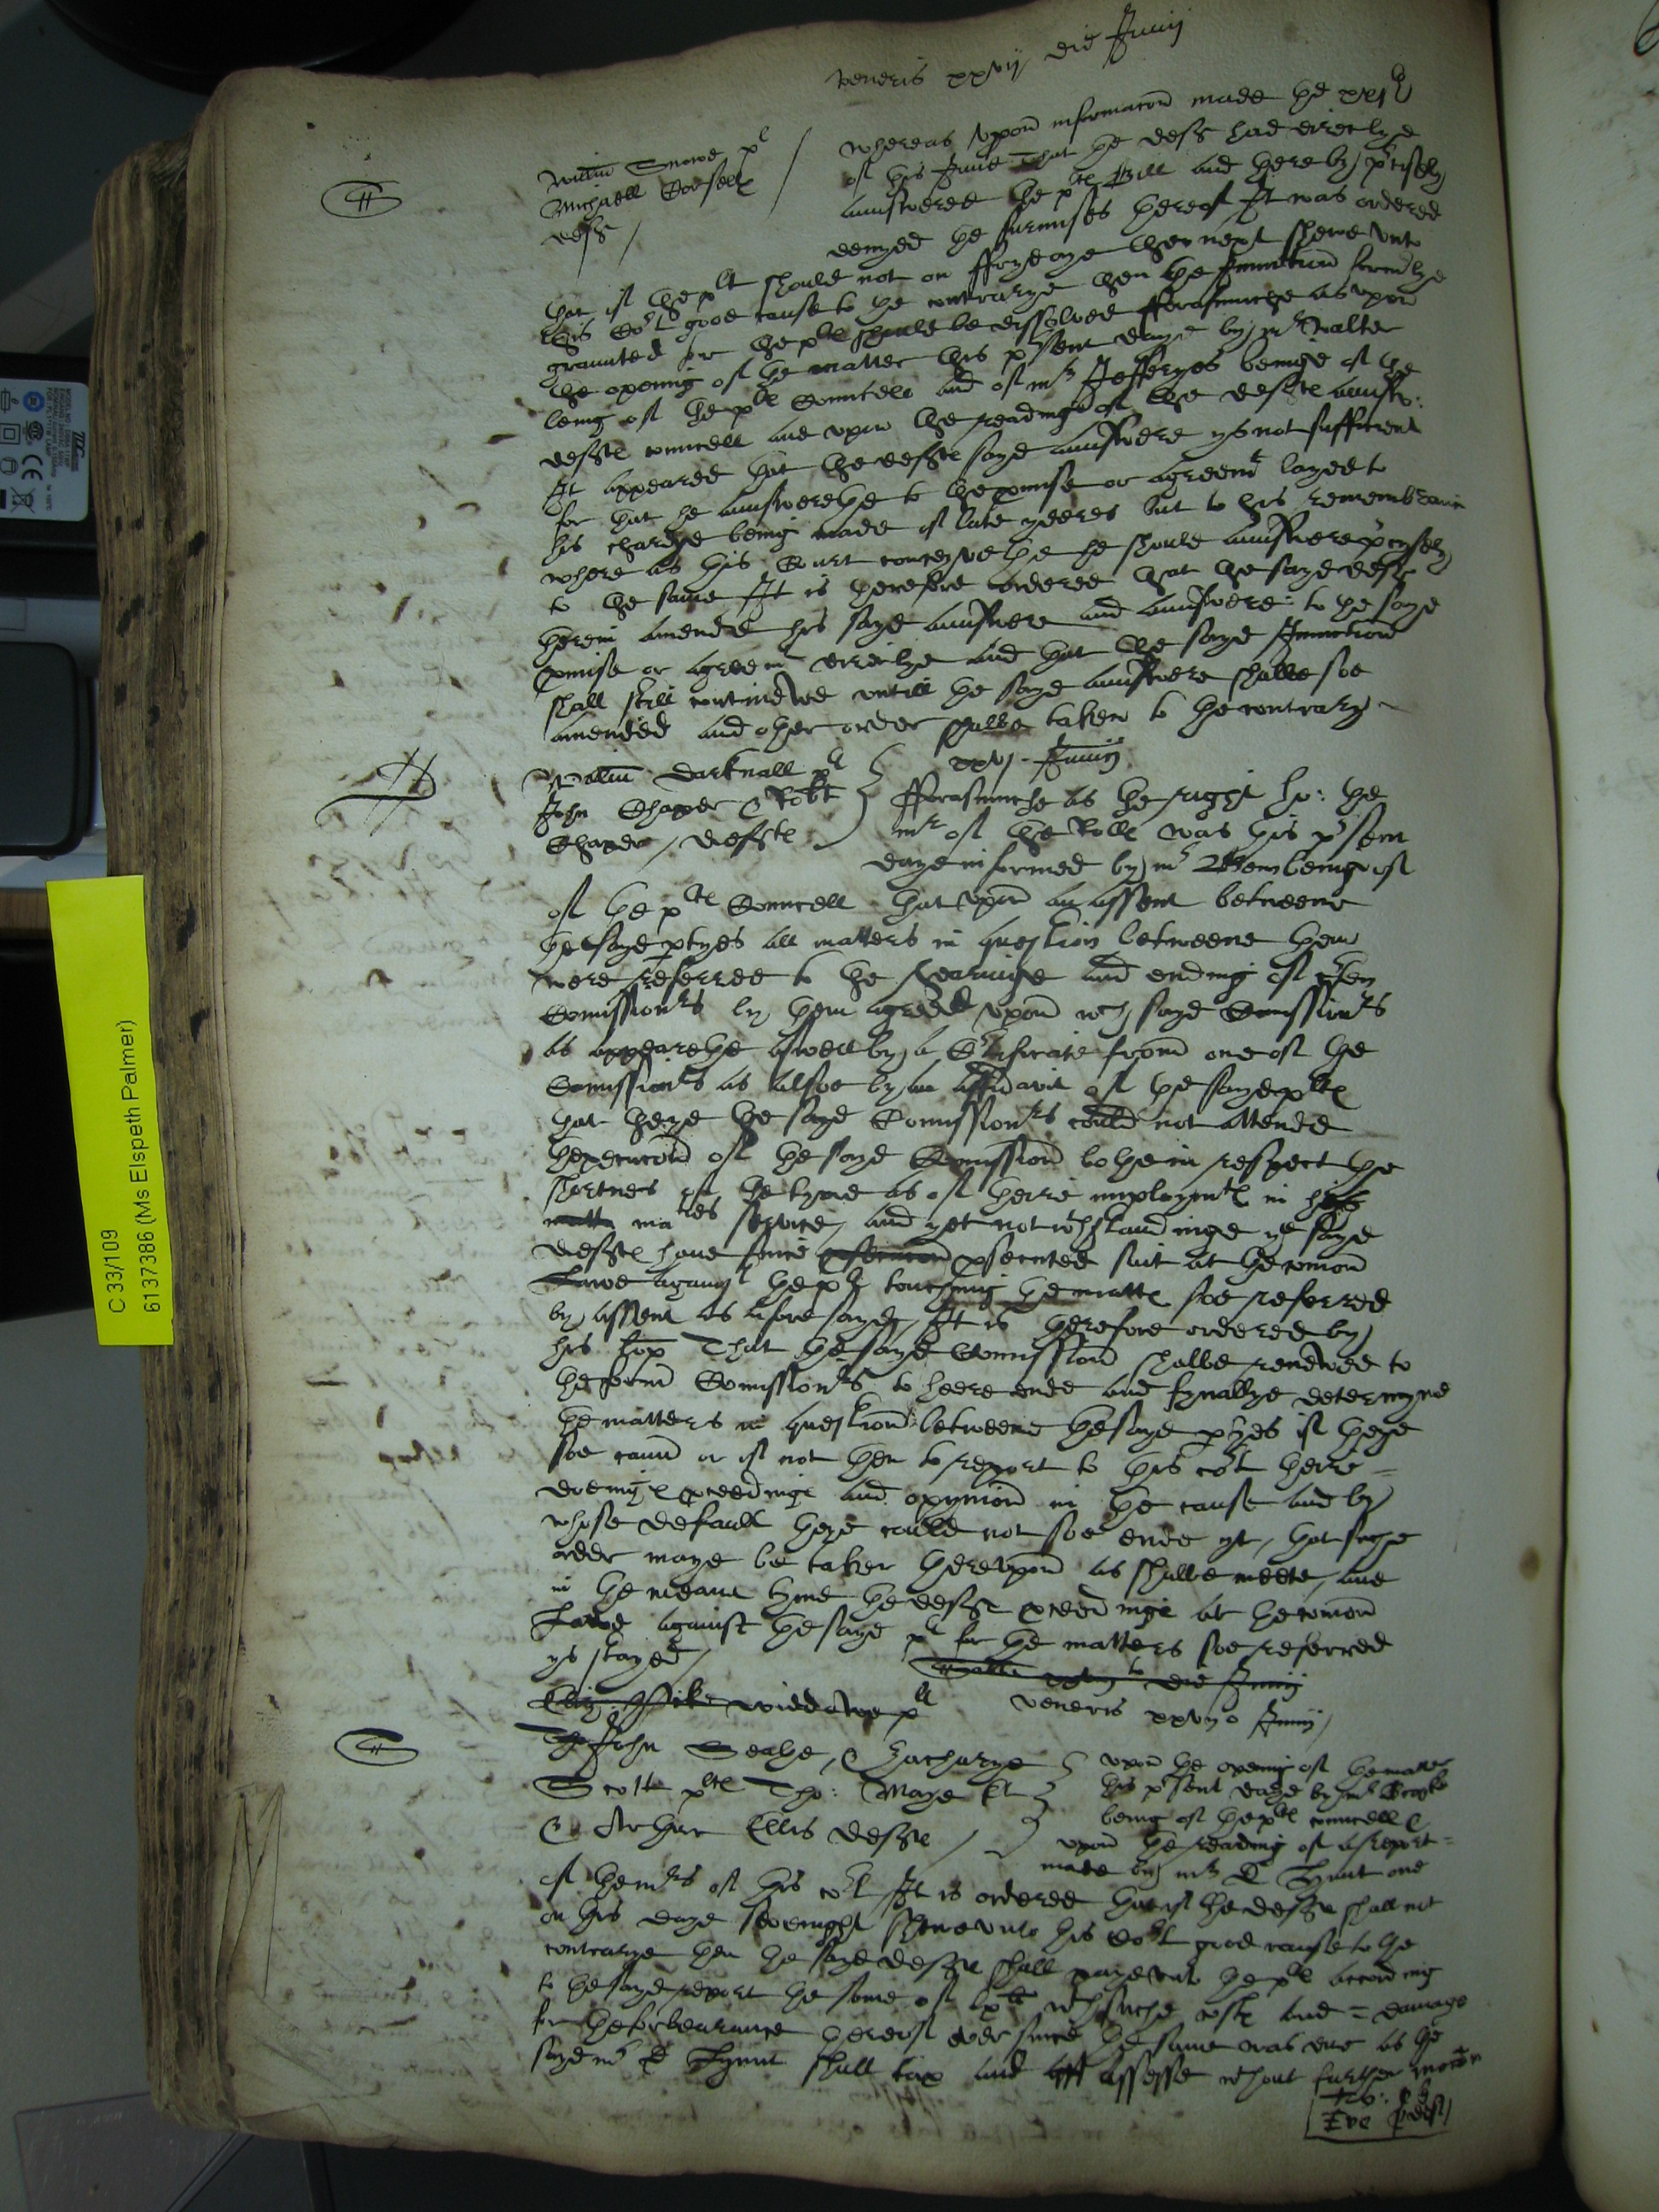 veneris xxvij die Junij
Willm Snowe pl
Michaell Gosesell
deft /
whereas vpon informacon made the xxjth
of this June That the deft had directlye
aunswered the pltes Bill and therebye p'cisely
denyed the surmises thereof It was ordered
that if the plt should not on ffrydaye then next shewe vnto
this Cort good cause to the contrarye then the Iniunction formrlye
graunted for the plt should be dissolved fforasmuche as vpon
the opening of the matter this p'sent daye by mr Walter
being of the pltes Councell and of mr Jefferyes beinge of the
deftes councell and vpon the readinge of the deftes aunsw:
It appeared that the deftes sayd aunswere ys not sufficient
for that he aunswerethe to the promise or agreemt layed to
his chardge being made of late yeeres but to his remembraunce
where as this Court conceyvethe he should aunswere p'cysely
to the same It is therefore ordered that the sayd deft
therein amende his sayd aunswere and aunswere to the sayd
promise or agreemt directlye and that the sayd Iniunction
shall still continewe vntill the sayd aunswere shalbe soe
amended and other order shalbe taken to the contrary
Willm Darknall pl
John Thaper & Robt
Thaper / deftes
xxvj Junij
fforasmuche as the right ho: the
mr of the Rolles was this p'sent
daye informed by mr being of
of the pltes Councell that vpon an assent betweene
the sayd ptyes all matters in question betweene them
were referred to the hearinge and ending of c'ten
Comissionrs by them agreed vpon wch sayd Comissionrs
as appearethe aswell by a C'tificate from one of the
Comissionrs as alsoe by an affidavit of the sayd plt
that theye the sayd Comissionrs could not attende
thexecucon of the sayd Comission bothe in respect the
shortnes of the tyme as of theire imploymtes in his
maties service, and yet notwthstandinge ye sayd
deftes have since prosecuted suit at the comon
Lawe against the plt touching the mattr soe referred
by assent as aforesayd, It is therefore ordered by
his hor That the sayd Comission shalbe renewed to
the form' Comissionrs to heere ende and fynallye determyne
the matters in question betweene the sayd ptyes if theye
soe cann or if not then to report to this cort theire =
doeinges p'ceedinges and opynion in the cause and by
whose default theye could not soe ende yt, that suche
order maye be taken therevpon as shalbe meete, and
in the meane tyme the deftes p'ceedinges at the comon
Lawe against the sayd plt for the matters soe referred
ys stayed /
die Junij
Eliz widdowe pl
veneris xxvijo Junij
John Seathe, & Zacharye
Scott pltes Tho: Maye kt
& Arthur Ellis deftes /
vpon the opening of the matter
this p'sent daye by mr Brooke
being of the pltes councell &
vpon the reading of a report =
made by mr D Hunt one
of the mrs of this cort It is ordered that if the deftes shall not
on this daye sevenight shewe vnto this Cort good cause to the
contrarye then the sayd deftes shall paye vnto the pltes according
to the sayd report the some of lxli wth suche costes and = damage
for the forbearance thereof ever since the same was due as the
sayd mr D Hunt shall tax and assesse wthout further mocon
C 33/109
6137386 (Ms Elspeth Palmer)